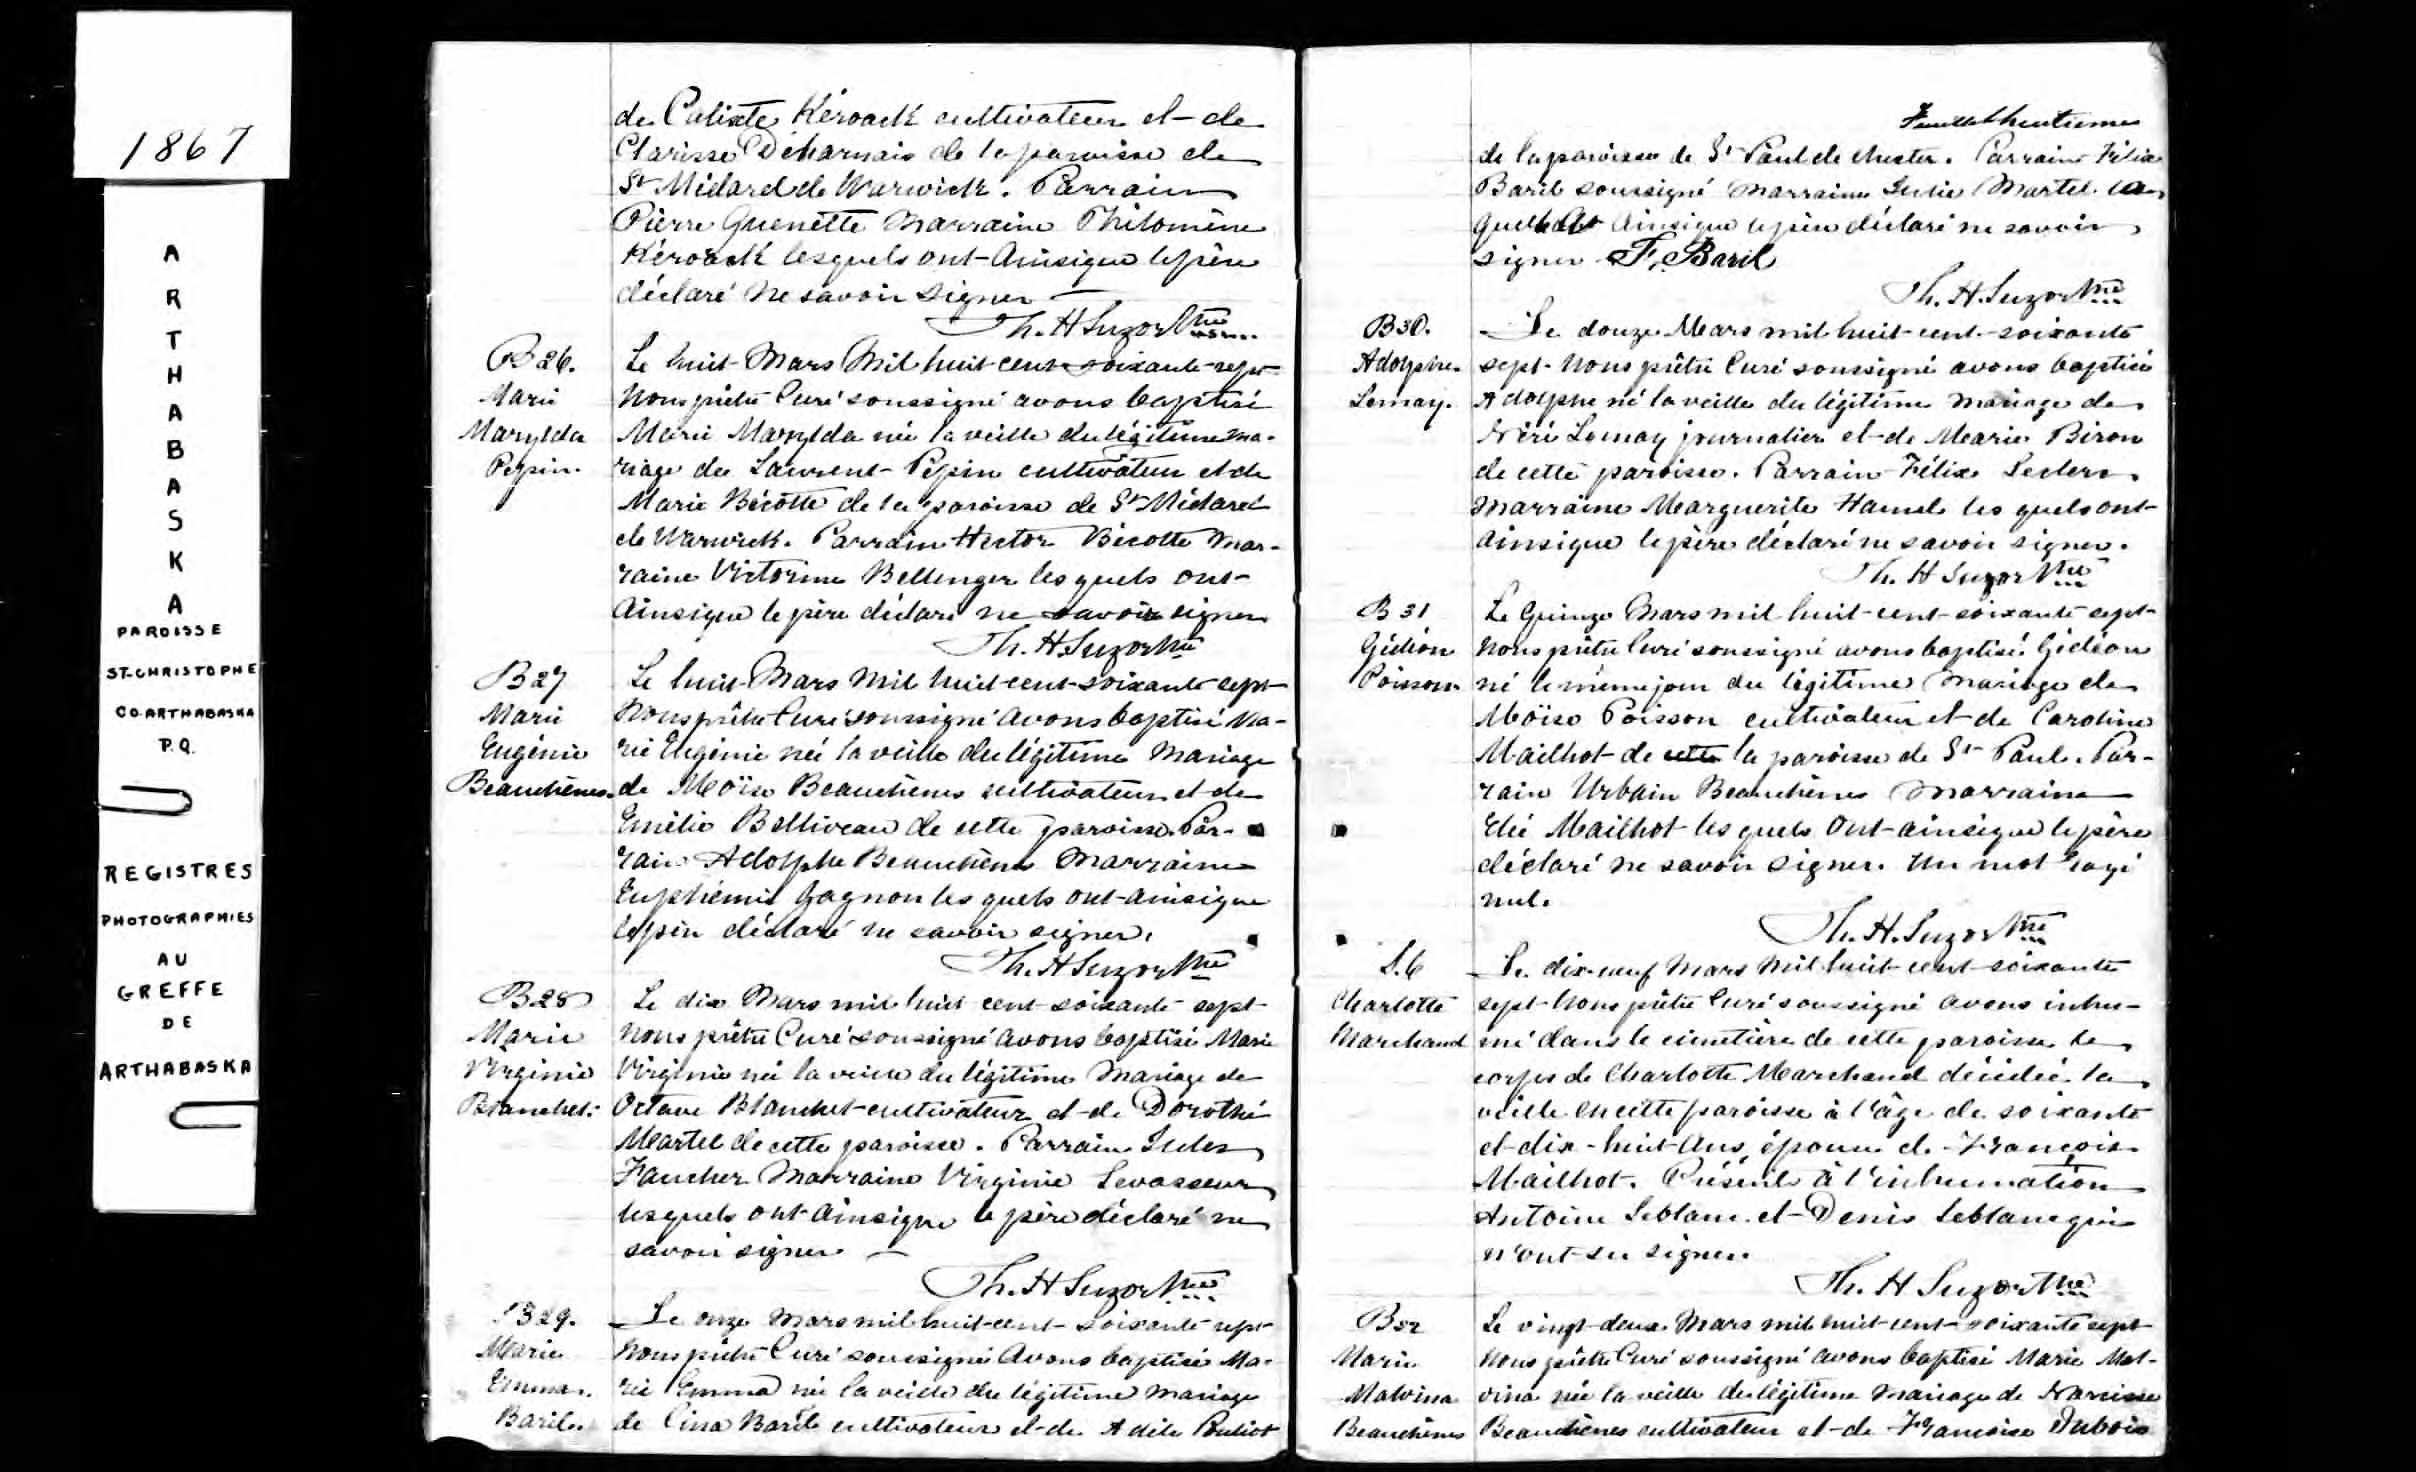 1867
ARTHABASKA
PAROISSE
ST-CHRISTOPHE
CO. ARTHABASKA
P.Q.
REGISTRES
PHOTOGRAPHIES
AU
GREFFE
DE
ARTHABASKA
de Calixte Kéroack cultivateur et de
Clarisse Deharnais de la paroisse de
St Médard de Warwick. Parrain
Pierre Guenette Marraine Philomène
Kéroack lesquels ont ainsique le père
déclaré ne savoir signer —
Th. H Suzor Ptre
B 26.
Marie
Marylda
Pepin.
Le huit Mars Mil huit cent soixante sept
Nous prêtre Curé soussigné avons baptisé
Marie Marylda née la veille du légitime ma-
riage de Laurent Pepin cultivateur et de
Marie Bécotte de la paroisse de St Médard
de Warwick. Parrain Hector Bécotte Mar-
raine Victorine Bellenger lesquels ont
ainsique le père déclaré ne savoir signer
Th. H. Suzor Ptre
B 27
Marie
Eugénie
Beauchènes.
Le huit Mars Mil huit cent soixante sept
Nous prêtre Curé soussigné avons baptisé Ma-
rie Eugénie née la veille du légitime Mariage
de Moïse Beauchènes cultivateur et de
Emélie Belliveau de cette paroisse. Par-
rain Adolphe Beauchènes Marraine
Euphémie Gagnon lesquels ont ainsique
le père déclaré ne savoir signer.
Th. H Suzor Ptre
B 28
Marie
Virginie
Blanchet.
Le dix Mars mil huit cent soixante sept
Nous prêtre Curé soussigné avons baptisé Marie
Virginie née la veille du légitime Mariage de
Octave Blanchet cultivateur et de Dorothé
Martel de cette paroisse. Parrain Jules
Faucher Marraine Virginie Levasseur
lesquels ont ainsique le père déclaré ne
savoir signer —
Th. H Suzor Ptre
B 29.
Marie
Emma.
Baril.
Le onze Mars mil huit cent soixante sept
Nous prêtre Curé soussigné avons baptisé Ma-
rie Emma née la veille du légitime mariage
de Cina Baril cultivateur et de Adèle Pouliot
Feuillet huitieme
de la paroisse de St Paul de Chester. Parrain Félix
Baril soussigné Marraine Julie Martel la
quelle a ainsique le père déclaré ne savoir
signer F. Baril
Th. H. Suzor Ptre
B 30.
Adolphe
Lemay.
Le douze Mars mil huit cent soixante
sept Nous prêtre Curé soussigné avons baptisé
Adolphe né la veille du légitime Mariage de
Néré Lemay journalier et de Marie Biron
de cette paroisse. Parrain Félix Leclerc
Marraine Marguerite Hamel lesquels ont
ainsique le père déclaré ne savoir signer.
Th. H Suzor Ptre
B 31
Gédéon
Poisson
Le Quinze Mars mil huit cent soixante sept
Nous prêtre Curé soussigné avons baptisé Gédéon
né le même jour du légitime Mariage de
Moïse Poisson cultivateur et de Caroline
Mailhot de cette la paroisse de St Paul. Par-
rain Urbain Beauchènes Marraine
Elié Mailhot lesquels ont ainsique le père
déclaré ne savoir signer. Un mot rayé
nul.
Th. H. Suzor Ptre
S. 6
Charlotte
Marchand
Le dix-neuf Mars Mil huit cent soixante
sept Nous prêtre Curé soussigné avons inhu-
mé dans le cimetière de cette paroisse le
corps de Charlotte Marchand décédée la
veille en cette paroisse à l'âge de soixante
et dix-huit ans, épouse de François
Mailhot. Présents à l'inhumation
Antoine Leblanc et Denis Leblanc qui
n'ont su signer.
Th. H Suzor Ptre
B 32
Marie
Malvina
Beauchènes
Le vingt-deux Mars mil huit cent soixante sept
Nous prêtre Curé soussigné avons baptisé Marie Mal-
vina née la veille du légitime Mariage de Narcisse
Beauchènes cultivateur et de Françoise Dubois